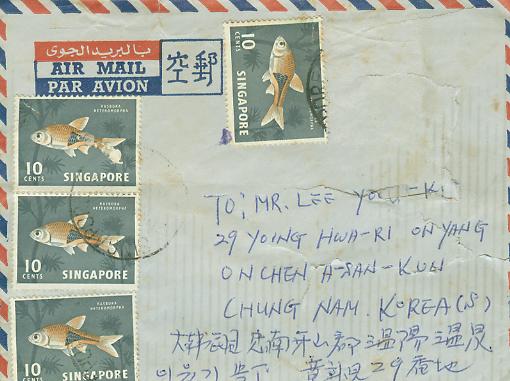 بالبريد الجوى
AIR MAIL
PAR AVION
空郵
10
CENTS
SINGAPORE
RASBORA
HETEROMORPHA
10
CENTS
SINGAPORE
RASBORA
HETEROMORPHA
10
CENTS
SINGAPORE
RASBORA
HETEROMORPHA
10
CENTS
SINGAPORE
TO; MR. LEE
29 YOING HWA-RI ONYANG
ONCHEN A-SAN-KUN
CHUNG NAM. KOREA(S)
忠南牙山郡溫陽溫泉
29番地